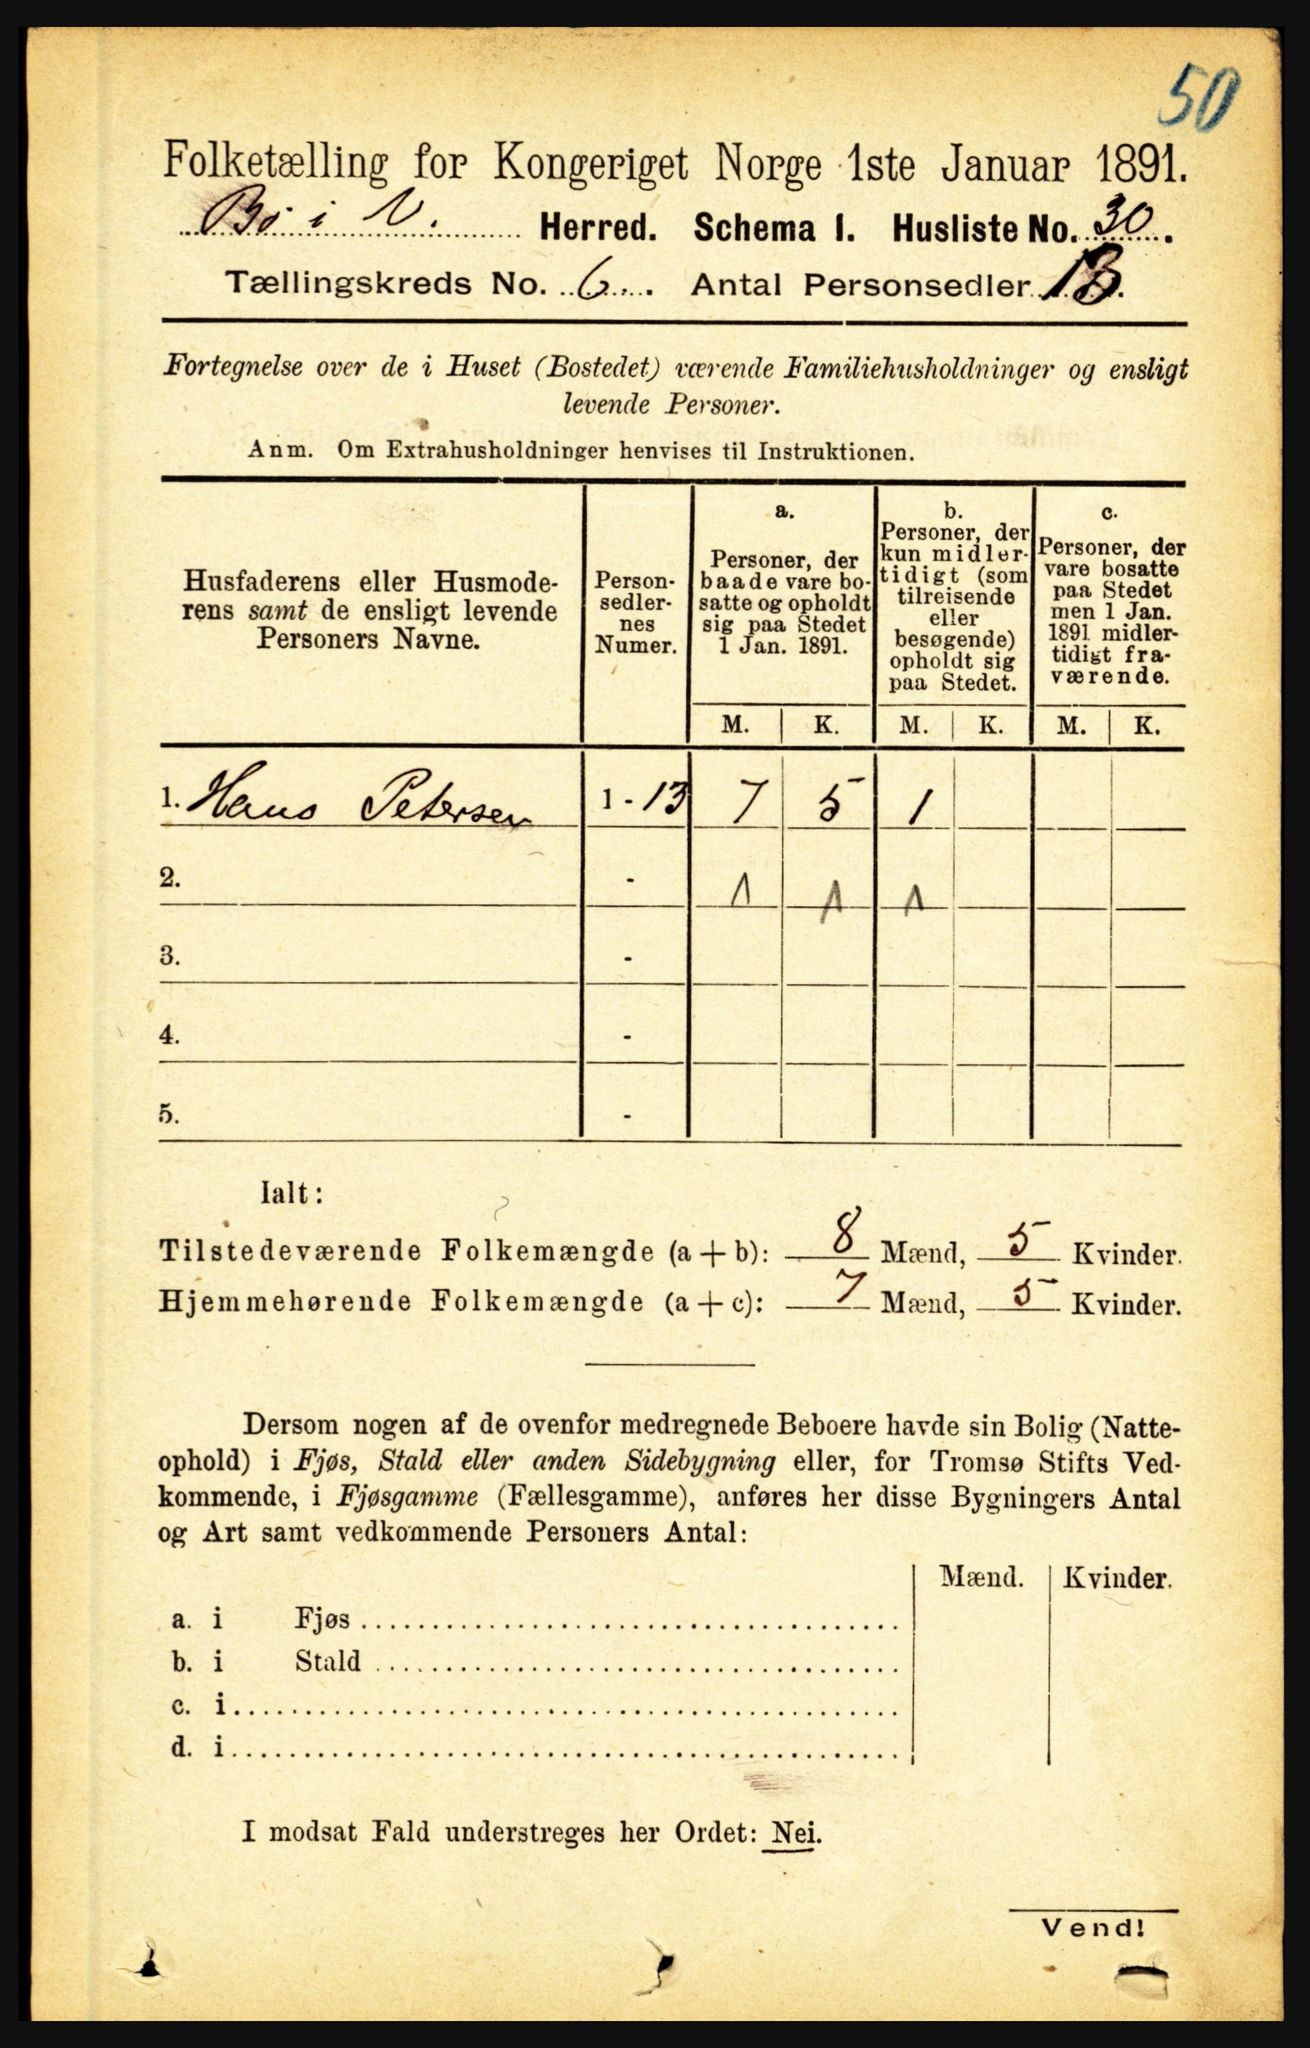 50
Folketælling for Kongeriget Norge 1ste Januar 1891.
Bø i V. Herred. Schema I. Husliste No. 30.
Tællingskreds No. 6. Antal Personsedler 13.
Fortegnelse over de i Huset (Bostedet) værende Familiehusholdninger og ensligt
levende Personer.
Anm. Om Extrahusholdninger henvises til Instruktionen.
Husfaderens eller Husmode-
rens samt de ensligt levende
Personers Navne.
Person-
sedler-
nes
Numer.
a.
Personer, der
baade vare bo-
satte og opholdt
sig paa Stedet
1 Jan. 1891.
b.
Personer, der
kun midler-
tidigt (som
tilreisende
eller
besøgende)
opholdt sig
paa Stedet.
c.
Personer, der
vare bosatte
paa Stedet
men 1 Jan.
1891 midler-
tidigt fra-
værende.
M. K. M. K. M. K.
1. Hans Petersen 1 - 13 7 5 1
2. - 1 1 1
3. -
4. -
5. -
Ialt:
Tilstedeværende Folkemængde (a + b): 8 Mænd, 5 Kvinder.
Hjemmehørende Folkemængde (a + c): 7 Mænd, 5 Kvinder.
Dersom nogen af de ovenfor medregnede Beboere havde sin Bolig (Natte-
ophold) i Fjøs, Stald eller anden Sidebygning eller, for Tromsø Stifts Ved-
kommende, i Fjøsgamme (Fællesgamme), anføres her disse Bygningers Antal
og Art samt vedkommende Personers Antal:
Mænd. Kvinder.
a. i Fjøs
b. i Stald
c. i
d. i
I modsat Fald understreges her Ordet: Nei.
Vend!